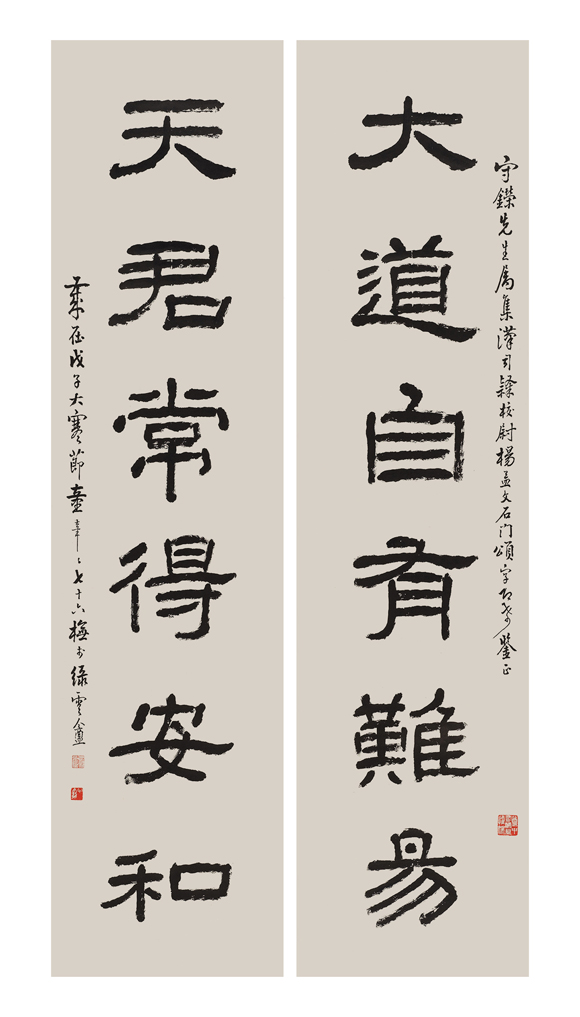 守鑅先生属集漢司隸校尉楊孟文石门頌字即希鑒正
大道自有難易
天君常得安和
歲在戊子大寒節童章七十六梅於绿雲盦